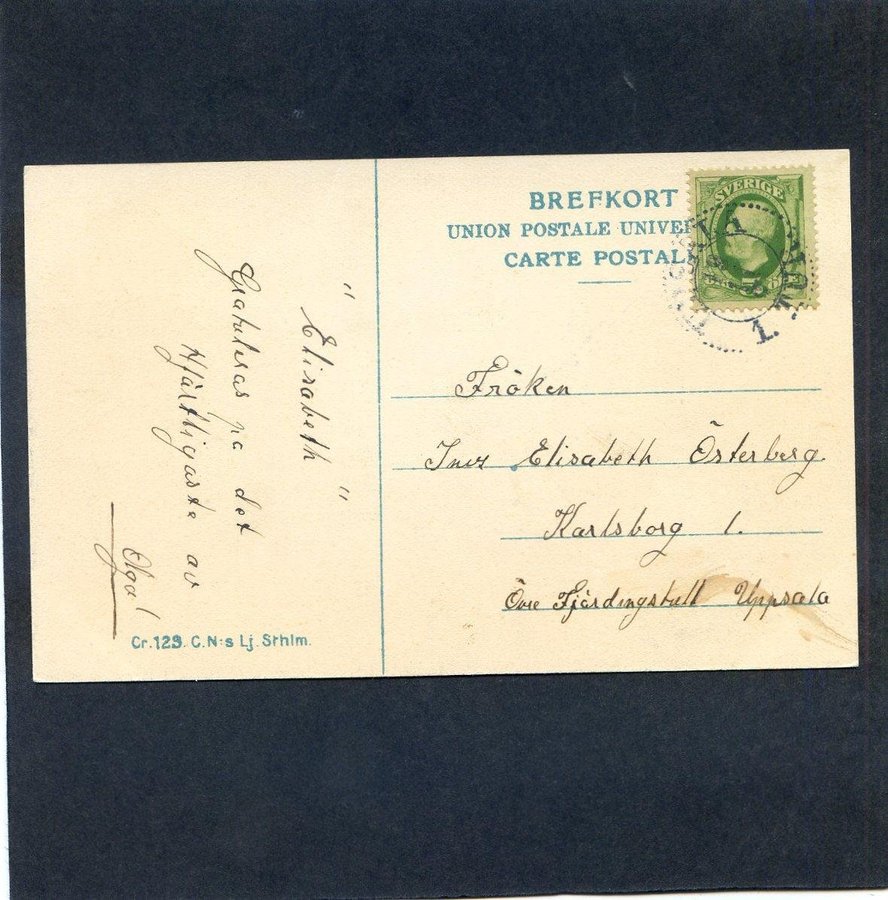 BREFKORT
UNION POSTALE UNIVER
CARTE POSTAL
SVERIGE
5
Fröken
Inez Elisabeth Österberg.
Karlsborg 1.
Övre Fjärdingstull Uppsala
"Elisabeth"
Gratuleras på det
Hjärtligaste av
Olga!
Cr.123. C.N:s Lj. Sthlm.